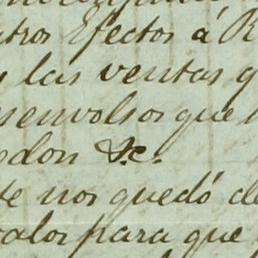 otros Efectos á R
y las ventas q
esenvolsos que
odon &c.
te nos quedó de
valos para que